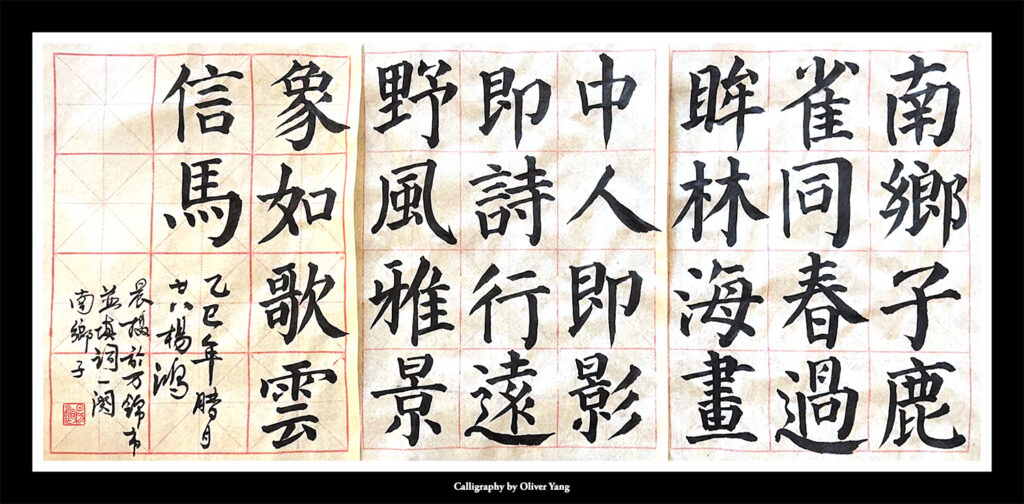 南鄉子鹿
雀同春過
眸林海畫
中人即影
即詩行遠
野風雅景
象如歌雲
信馬
乙巳年腊月
廿八楊鴻
晨攝於万錦市
並填詞一闋
南鄉子
Calligraphy by Oliver Yang